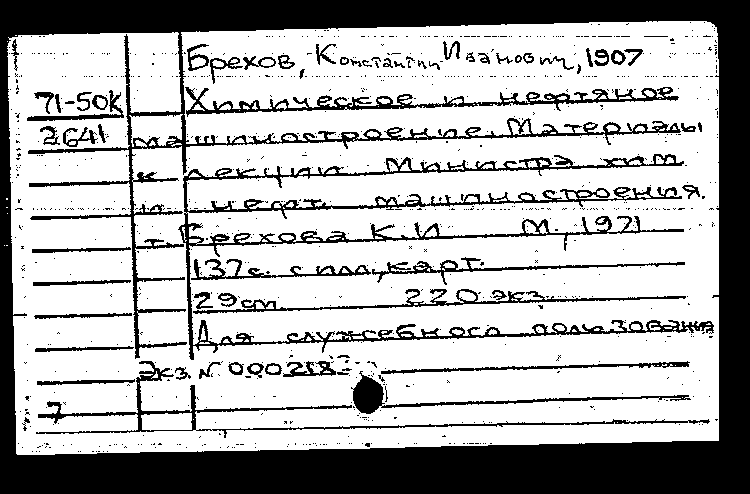 Брехов, Константин Иванович, 1907
71-50К Химическое и нефтяное
2641 машиностроение. Материалы
к лекции Министра хим
и нефт. машиностроения.
т. Брехова К.И М., 1971
137с. с илл., карт.
29 см 220 экз.
Для служебного пользования
Экз. № 000218
7